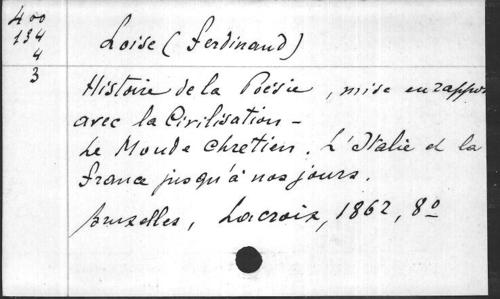 400
134
4
3
Loise (Ferdinand)
Histoire de la Poésie, mise en rappor
avec la Civilisation -
Le Monde chrétien. L'Italie et la
France jusqu'à nos jours.
Bruxelles, Lacroix, 1862, 8º